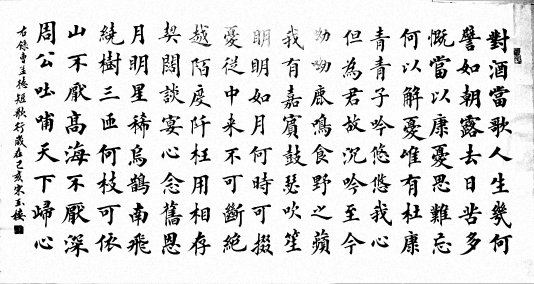 對酒當歌人生幾何
譬如朝露去日苦多
慨當以康憂思難忘
何以解憂唯有杜康
青青子吟悠悠我心
但為君故沉吟至今
呦呦鹿鳴食野之蘋
我有嘉賓鼓瑟吹笙
明明如月何時可掇
憂從中来不可斷絕
越陌度阡枉用相存
契闊談宴心念舊恩
月明星稀烏鵲南飛
繞樹三匝何枝可依
山不厭高海不厭深
周公吐哺天下歸心
右錄曹孟德短歌行歲在己亥宋玉